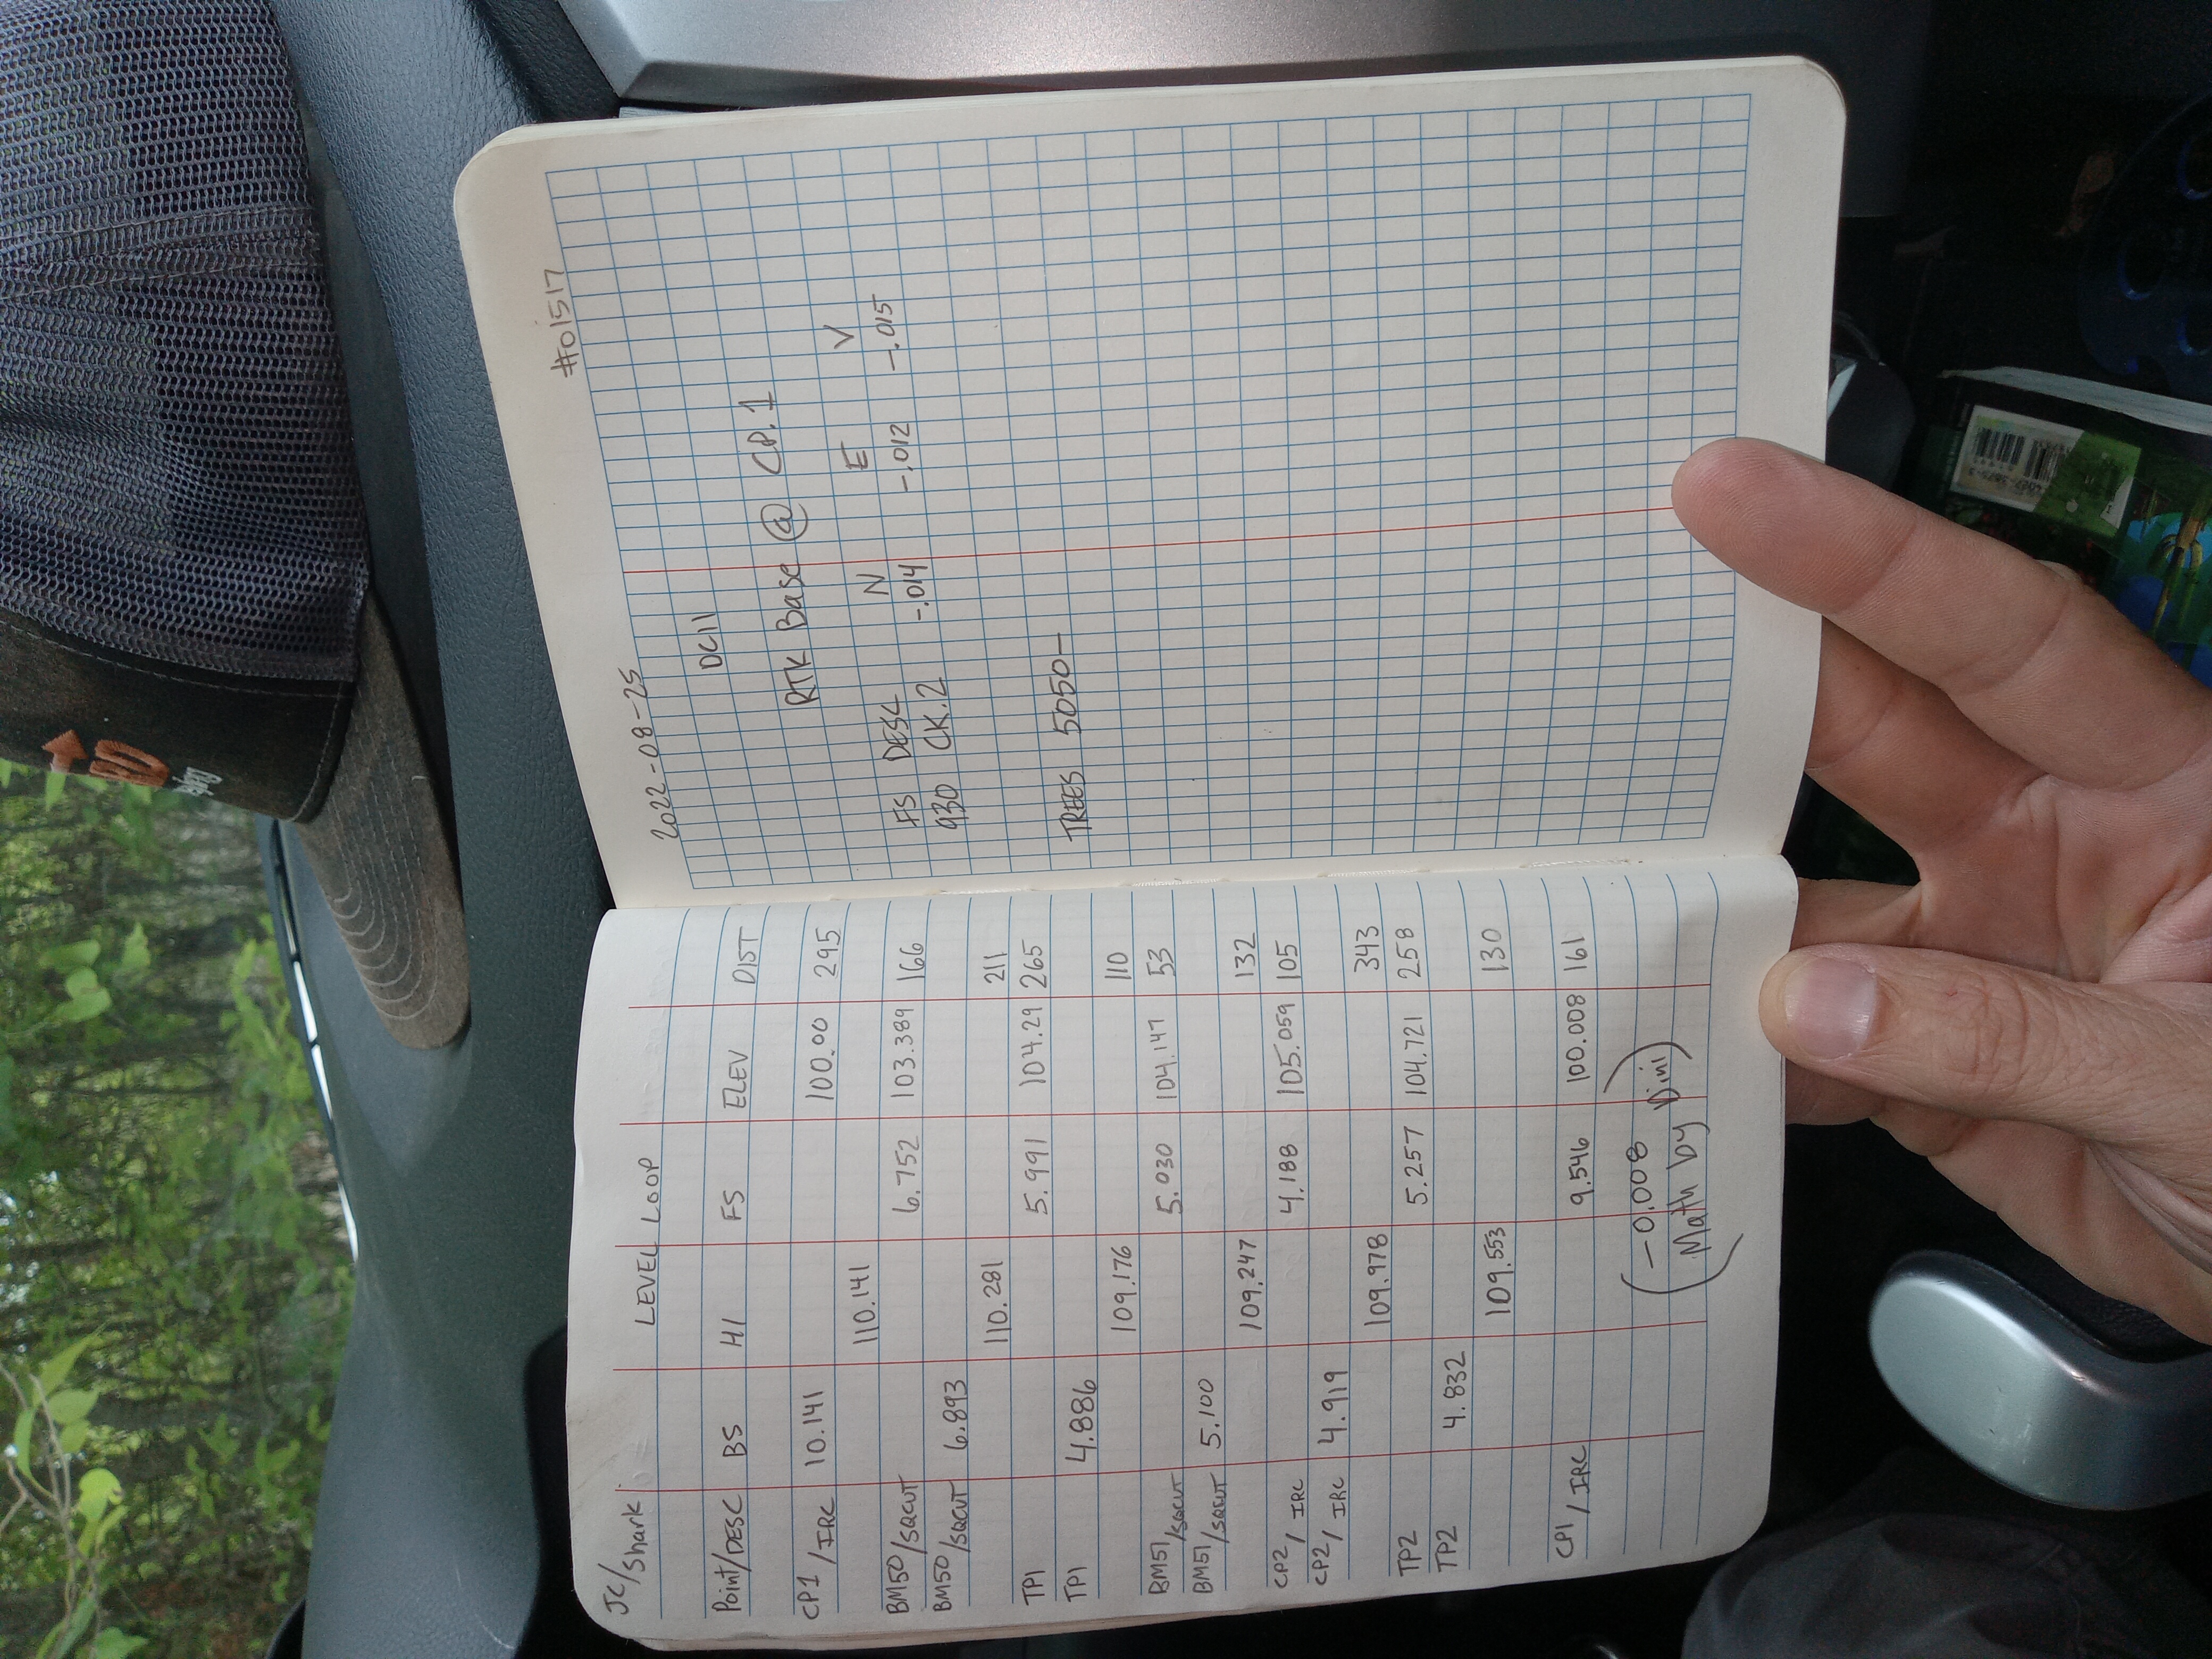 JC/Shark LEVEL LOOP
Point/DESC BS HI FS ELEV DIST
CP1/IRC 10.141 100.00 295
110.141
BM50/SQCUT 6.752 103.389 166
BM50/SQCUT 6.893
110.281 211
TP1 5.991 104.29 265
TP1 4.886
109.176 110
BM51/SQCUT 5.030 104.147 53
BM51/SQCUT 5.100
109.247 132
CP2/IRC 4.188 105.059 105
CP2/IRC 4.919
109.978 343
TP2 5.257 104.721 258
TP2 4.832
109.553 130
CP1/IRC 9.546 100.008 161
(-0.008)
(Math by Dini)
2022-08-25 #01517
DC11
RTK Base @ CP.1
FS DESC N E V
930 CK.2 -.014 -.012 -.015
TREES 5050-